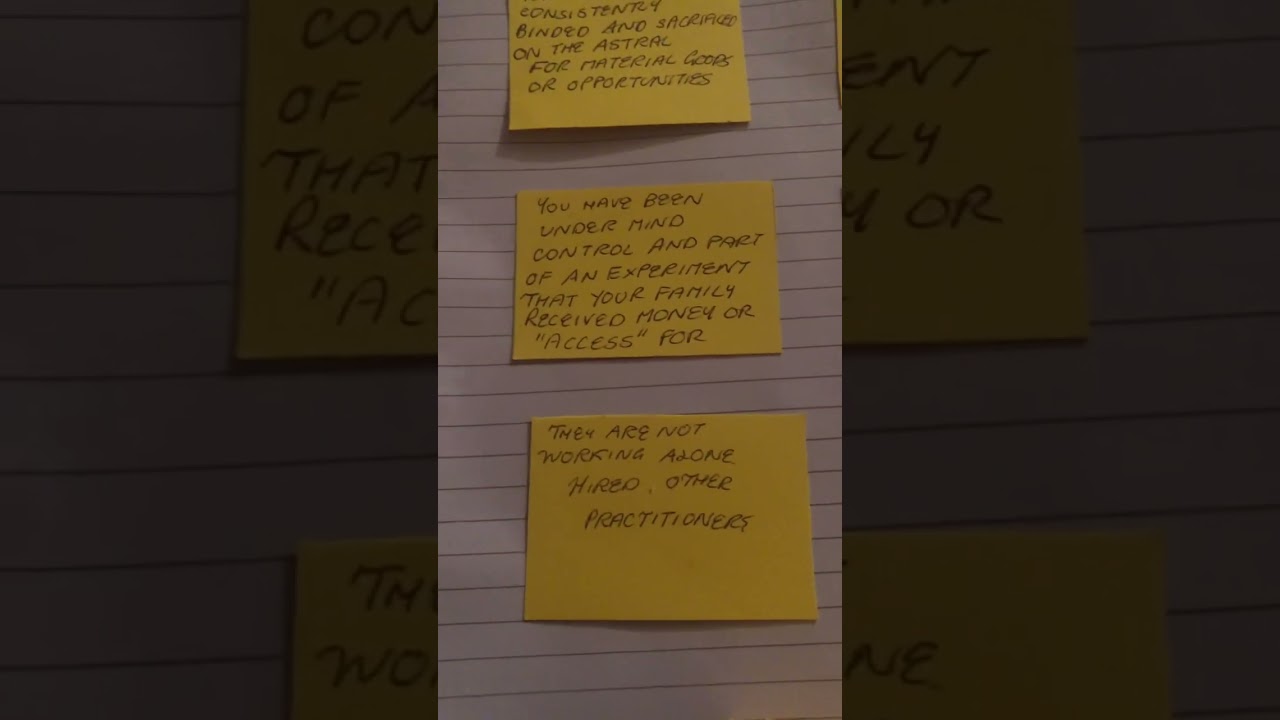 CONSISTENTLY
BINDED AND SACRIFICED
ON THE ASTRAL
FOR MATERIAL GOODS
OR OPPORTUNITIES
YOU HAVE BEEN
UNDER MIND
CONTROL AND PART
OF AN EXPERIMENT
THAT YOUR FAMILY
RECEIVED MONEY OR
"ACCESS" FOR
THEY ARE NOT
WORKING ALONE
HIRED, OTHER
PRACTITIONERS